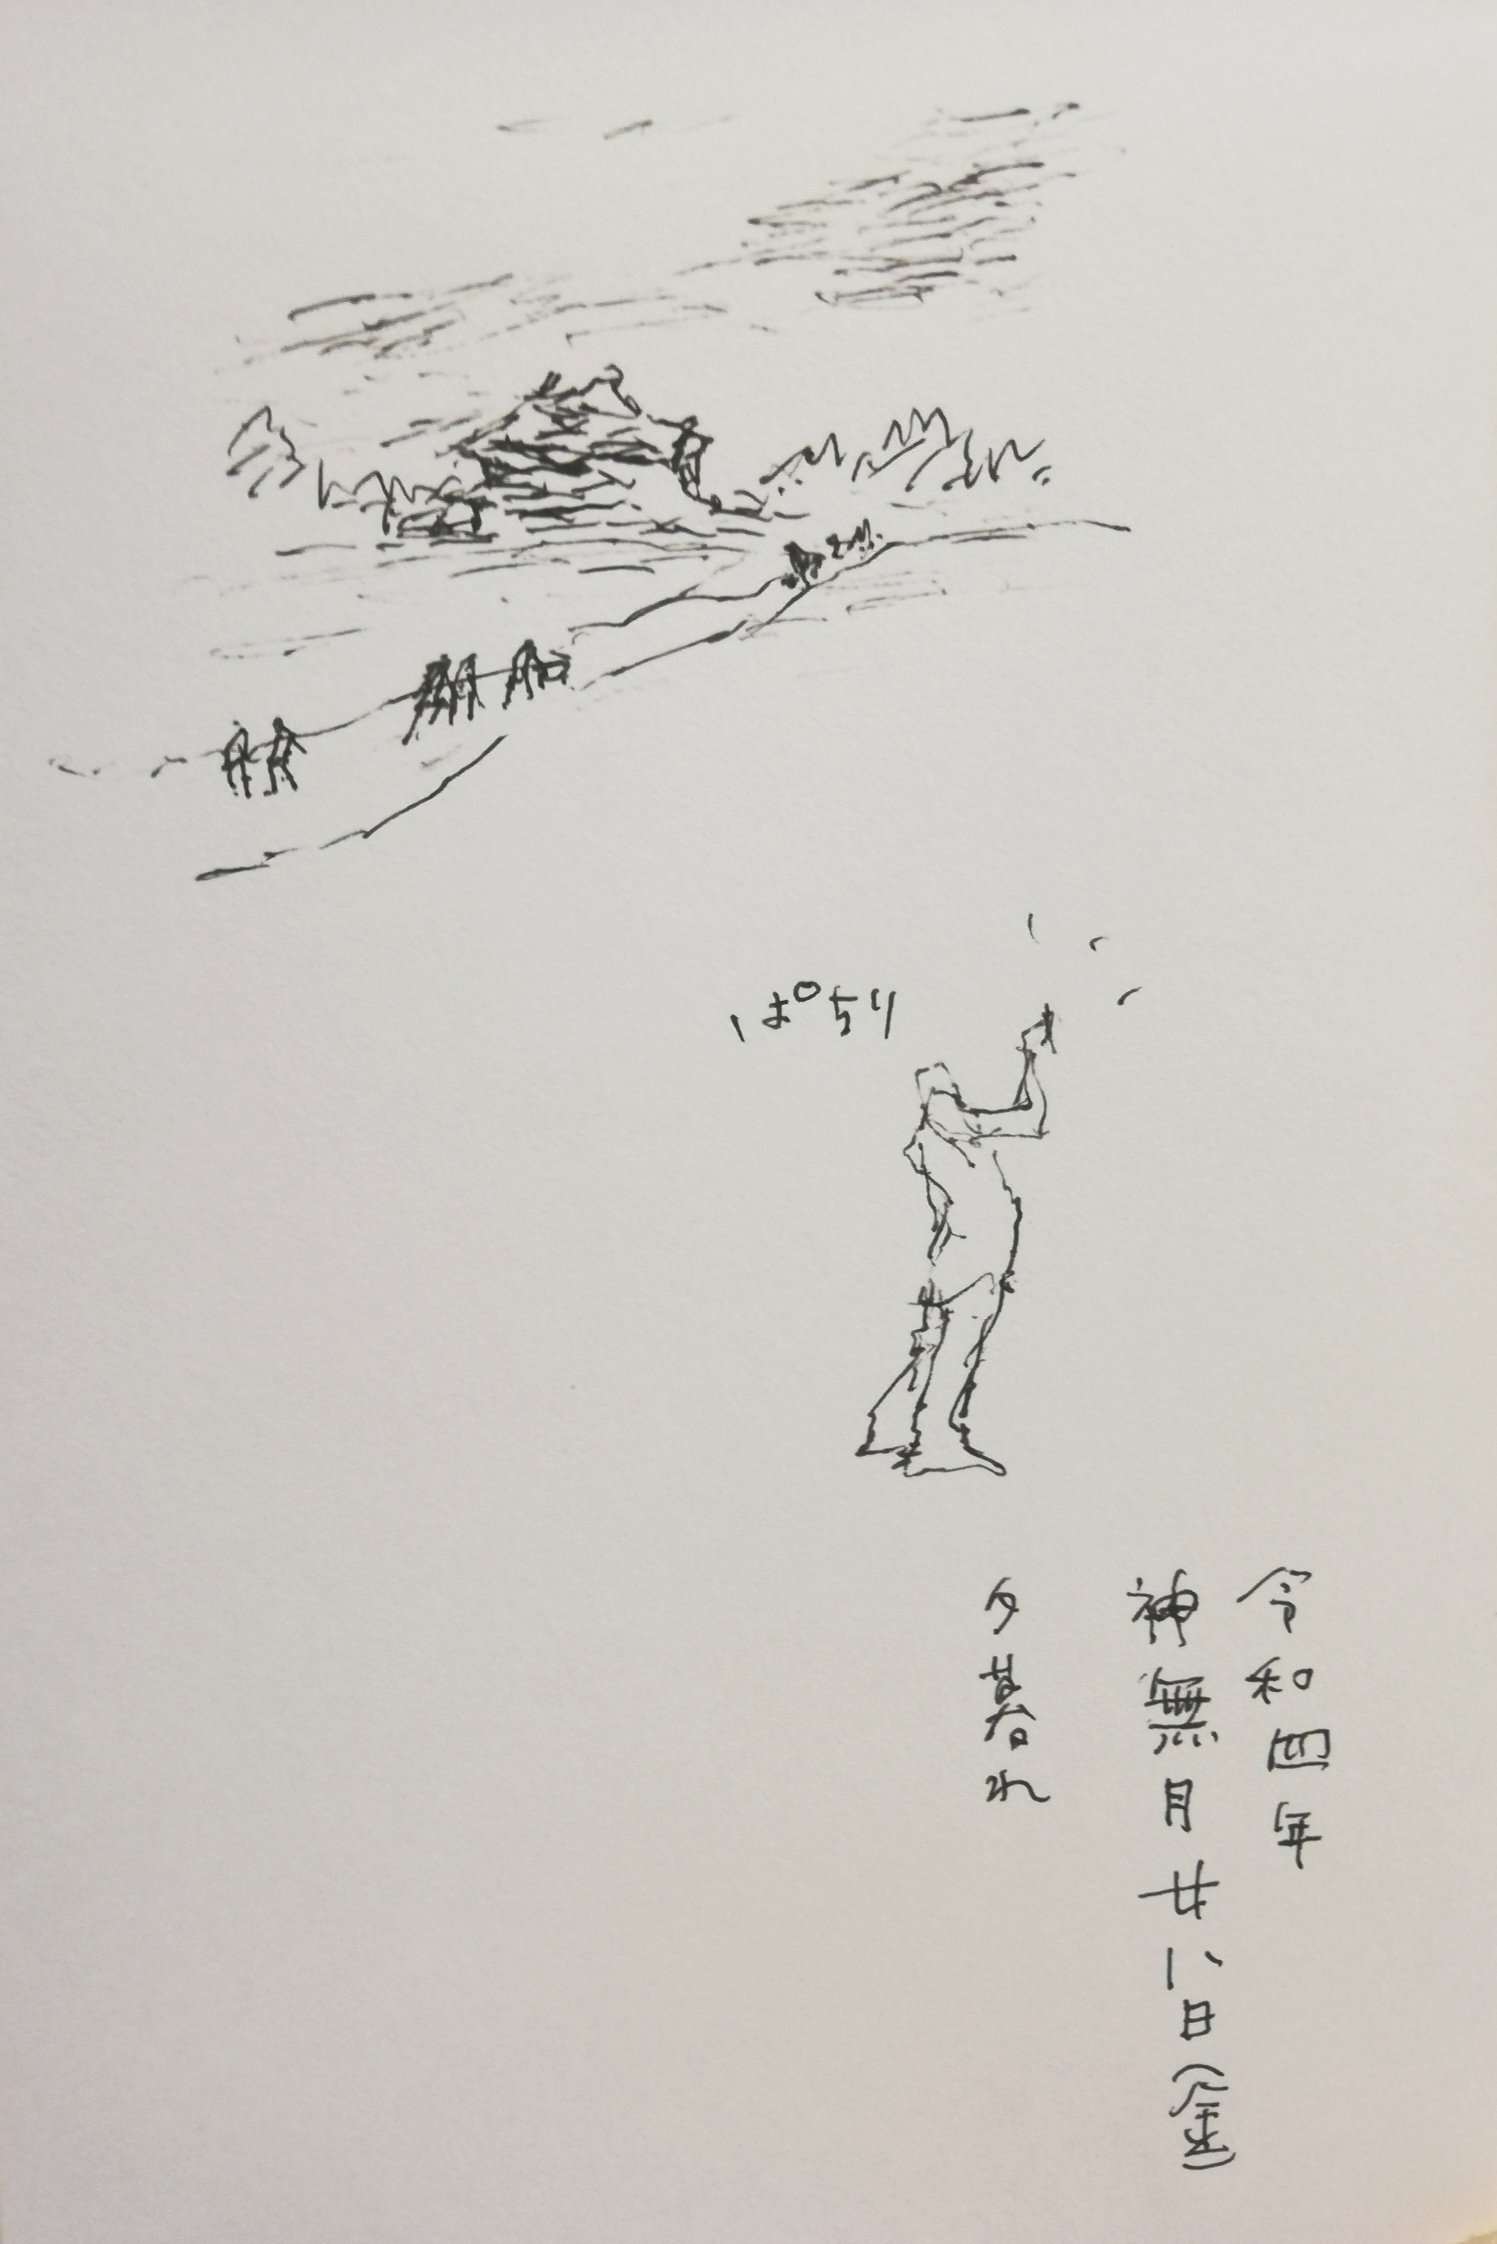 ぱちり
令和四年
神無月廿八日(金)
夕暮れ